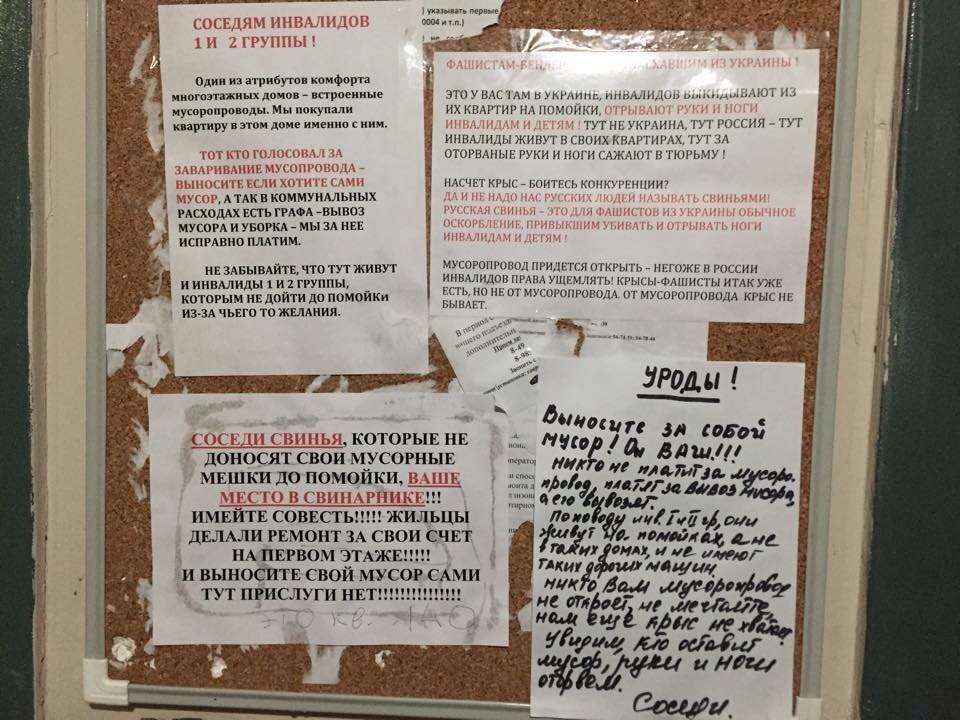 СОСЕДЯМ ИНВАЛИДОВ
1 И 2 ГРУППЫ !
Один из атрибутов комфорта
многоэтажных домов – встроенные
мусоропроводы. Мы покупали
квартиру в этом доме именно с ним.
ТОТ КТО ГОЛОСОВАЛ ЗА
ЗАВАРИВАНИЕ МУСОПРОВОДА –
ВЫНОСИТЕ ЕСЛИ ХОТИТЕ САМИ
МУСОР, А ТАК В КОММУНАЛЬНЫХ
РАСХОДАХ ЕСТЬ ГРАФА –ВЫВОЗ
МУСОРА И УБОРКА – МЫ ЗА НЕЕ
ИСПРАВНО ПЛАТИМ.
НЕ ЗАБЫВАЙТЕ, ЧТО ТУТ ЖИВУТ
И ИНВАЛИДЫ 1 И 2 ГРУППЫ,
КОТОРЫМ НЕ ДОЙТИ ДО ПОМОЙКИ
ИЗ-ЗА ЧЬЕГО ТО ЖЕЛАНИЯ.
) указывать первые
0004 и т.п.)
ФАШИСТАМ- ИЗ УКРАИНЫ !
ЭТО У ВАС ТАМ В УКРАИНЕ, ИНВАЛИДОВ ВЫКИДЫВАЮТ ИЗ
ИХ КВАРТИР НА ПОМОЙКИ, ОТРЫВАЮТ РУКИ И НОГИ
ИНВАЛИДАМ И ДЕТЯМ ! ТУТ НЕ УКРАИНА, ТУТ РОССИЯ – ТУТ
ИНВАЛИДЫ ЖИВУТ В СВОИХ КВАРТИРАХ, ТУТ ЗА
ОТОРВАНЫЕ РУКИ И НОГИ САЖАЮТ В ТЮРЬМУ !
НАСЧЕТ КРЫС – БОИТЕСЬ КОНКУРЕНЦИИ?
ДА И НЕ НАДО НАС РУССКИХ ЛЮДЕЙ НАЗЫВАТЬ СВИНЬЯМИ!
РУССКАЯ СВИНЬЯ – ЭТО ДЛЯ ФАШИСТОВ ИЗ УКРАИНЫ ОБЫЧНОЕ
ОСКОРБЛЕНИЕ, ПРИВЫКШИМ УБИВАТЬ И ОТРЫВАТЬ НОГИ
ИНВАЛИДАМ И ДЕТЯМ !
МУСОРОПРОВОД ПРИДЕТСЯ ОТКРЫТЬ – НЕГОЖЕ В РОССИИ
ИНВАЛИДОВ ПРАВА УЩЕМЛЯТЬ! КРЫСЫ-ФАШИСТЫ ИТАК УЖЕ
ЕСТЬ, НО НЕ ОТ МУСОРОПРОВОДА. ОТ МУСОРОПРОВОДА КРЫС НЕ
БЫВАЕТ.
В период с
вашего подъезда
дополнительн
СОСЕДИ СВИНЬЯ, КОТОРЫЕ НЕ
ДОНОСЯТ СВОИ МУСОРНЫЕ
МЕШКИ ДО ПОМОЙКИ, ВАШЕ
МЕСТО В СВИНАРНИКЕ!!!
ИМЕЙТЕ СОВЕСТЬ!!!!! ЖИЛЬЦЫ
ДЕЛАЛИ РЕМОНТ ЗА СВОИ СЧЕТ
НА ПЕРВОМ ЭТАЖЕ!!!!!
И ВЫНОСИТЕ СВОЙ МУСОР САМИ
ТУТ ПРИСЛУГИ НЕТ!!!!!!!!!!!!!!!!
это кв.
УРОДЫ !
Выносите за собой
мусор! Он ВАШ!!!
никто не платит за мусоро-
провод, платят за вывоз мусора,
а его вывозят.
По поводу инв. I и II гр, они
живут на помойках, а не
в таких домах, и не имеют
таких дорогих машин
никто Вам мусоропровод
не откроет, не мечтайте,
нам еще крыс не хватает
Увидим, кто оставит
мусор, руки и ноги
оторвем.
Соседи.